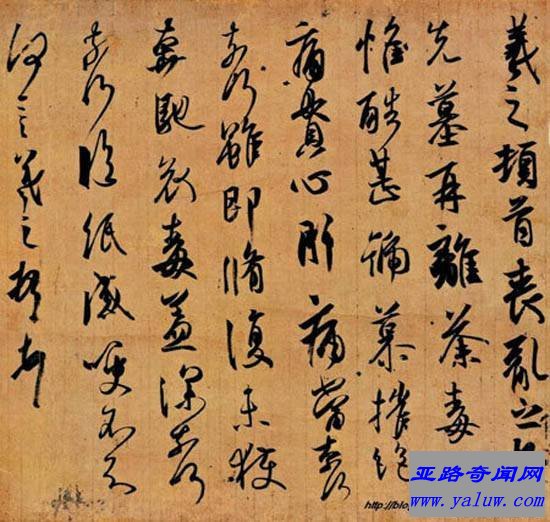 羲之頓首喪亂之
先墓再離荼毒
惟酷甚號慕摧絕
痛貫心肝痛當奈何
奈何雖即脩復未獲
奔馳哀毒益深奈何
奈何臨紙感哽不知
何言羲之頓首
http://blog
亚路奇闻网
www.yaluw.com